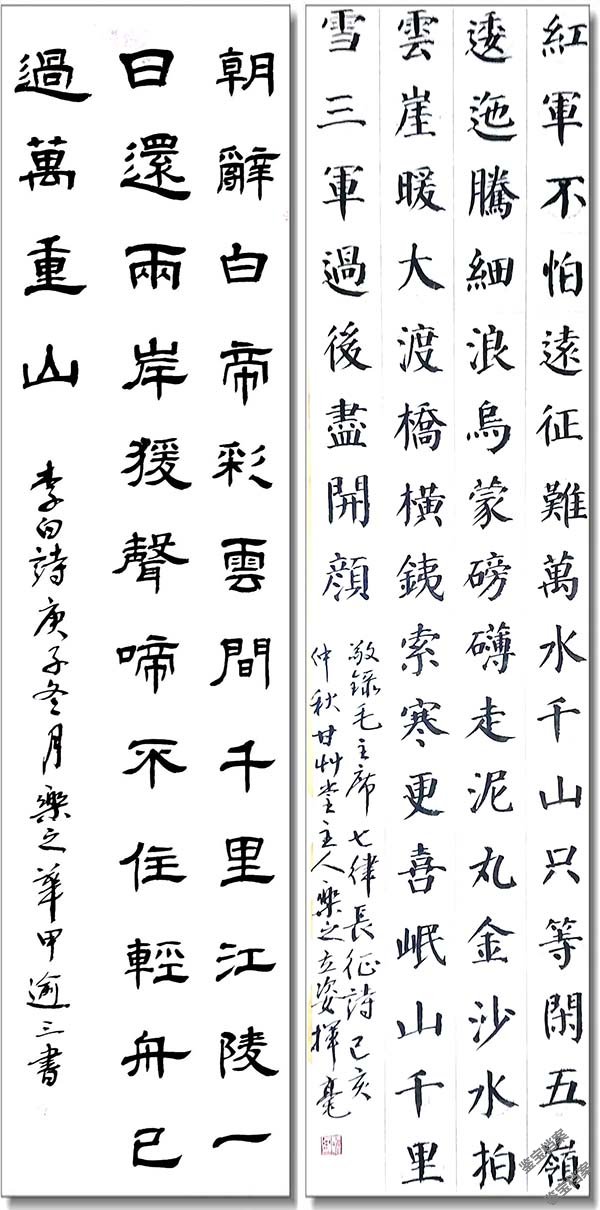 紅軍不怕遠征難萬水千山只等閑五嶺
逶迤騰細浪烏蒙磅礴走泥丸金沙水拍
雲崖暖大渡橋橫銕索寒更喜岷山千里
雪三軍過後盡開顔
敬録毛主席七律長征詩己亥
仲秋甘艸堂主人樂之立姿揮毫
朝辭白帝彩雲間千里江陵一
日還兩岸猨聲啼不住輕舟已
過萬重山
李白詩庚子冬月樂之華甲逾三書
鉴宝档案
鉴宝档案